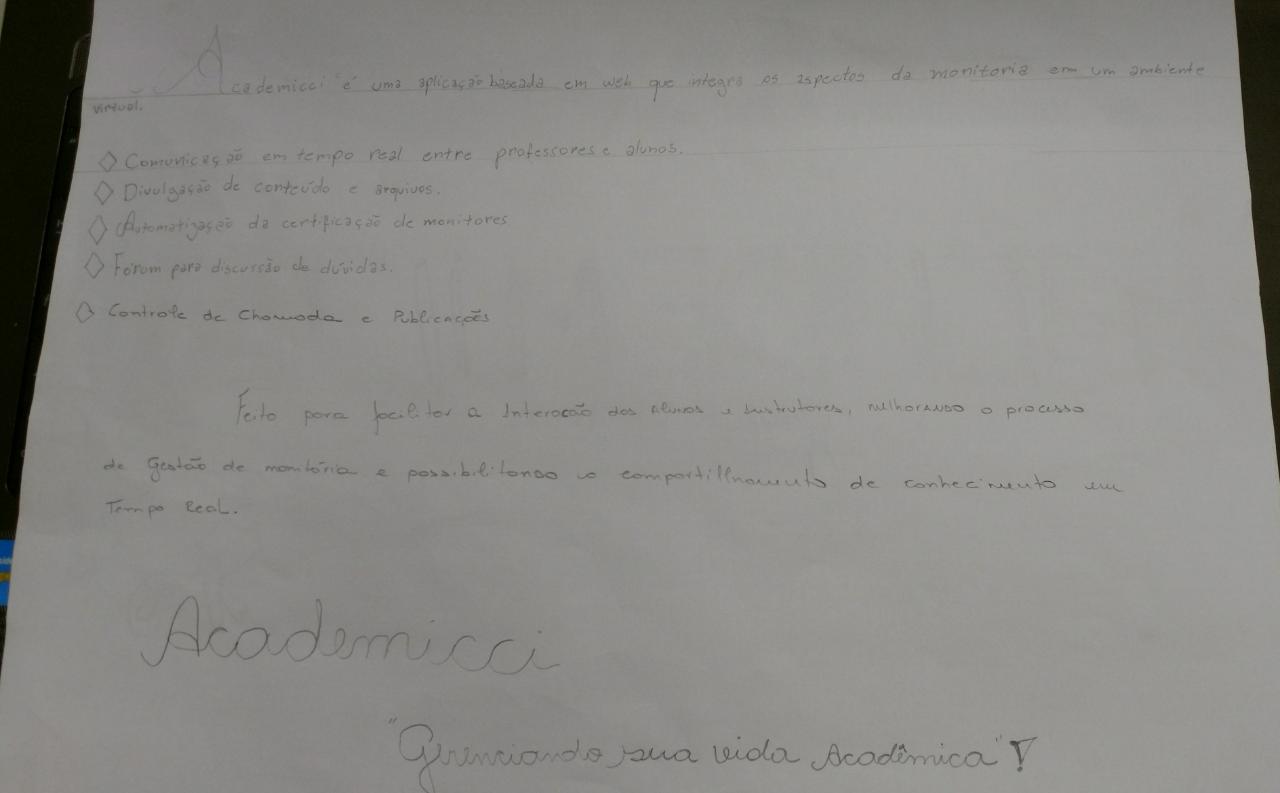 Academicci é uma aplicação baseada em web que integra os aspectos da monitoria em um ambiente
virtual.
◇ Comunicação em tempo real entre professores e alunos.
◇ Divulgação de conteúdo e arquivos.
◇ Automatização da certificação de monitores
◇ Fórum para discussão de dúvidas.
◇ Controle de Chamada e Publicações
Feito para facilitar a Interação dos Alunos e Instrutores, melhorando o processo
de Gestão de monitória e possibilitando o compartilhamento de conhecimento em
Tempo Real.
Academicci
"Gerenciando sua vida Acadêmica"!